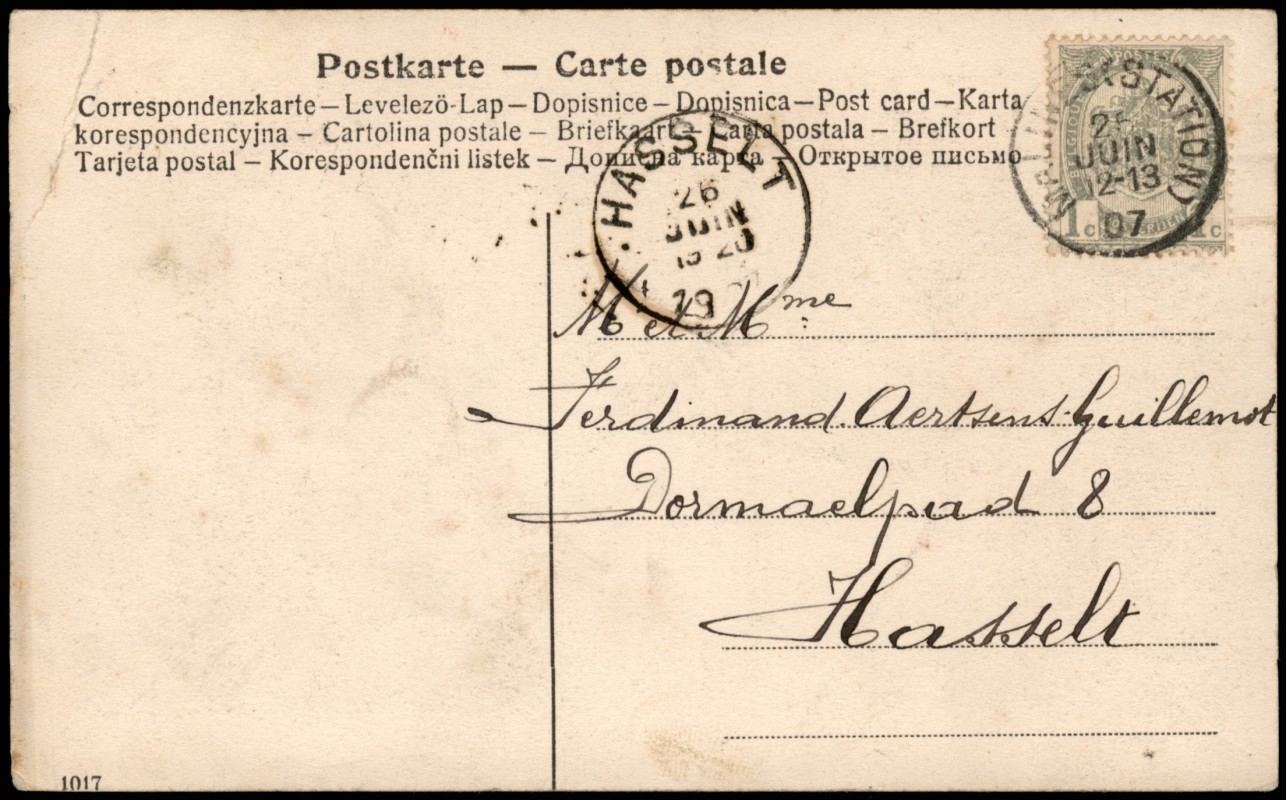 Postkarte — Carte postale
Correspondenzkarte – Levelezö-Lap – Dopisnice – Dopisnica – Post card – Karta
korespondencyjna – Cartolina postale – Briefkaart – Carta postala – Brefkort
Tarjeta postal – Korespondenčni listek – Дописна карта – Открытое письмо
(STATION)
JUIN
12-13
07
POSTES
1c 1c
HASSELT
26
JUIN
19
M et Mme
Ferdinand Aertsens-Guillemot
Dormaelpad 8
Hasselt
1017